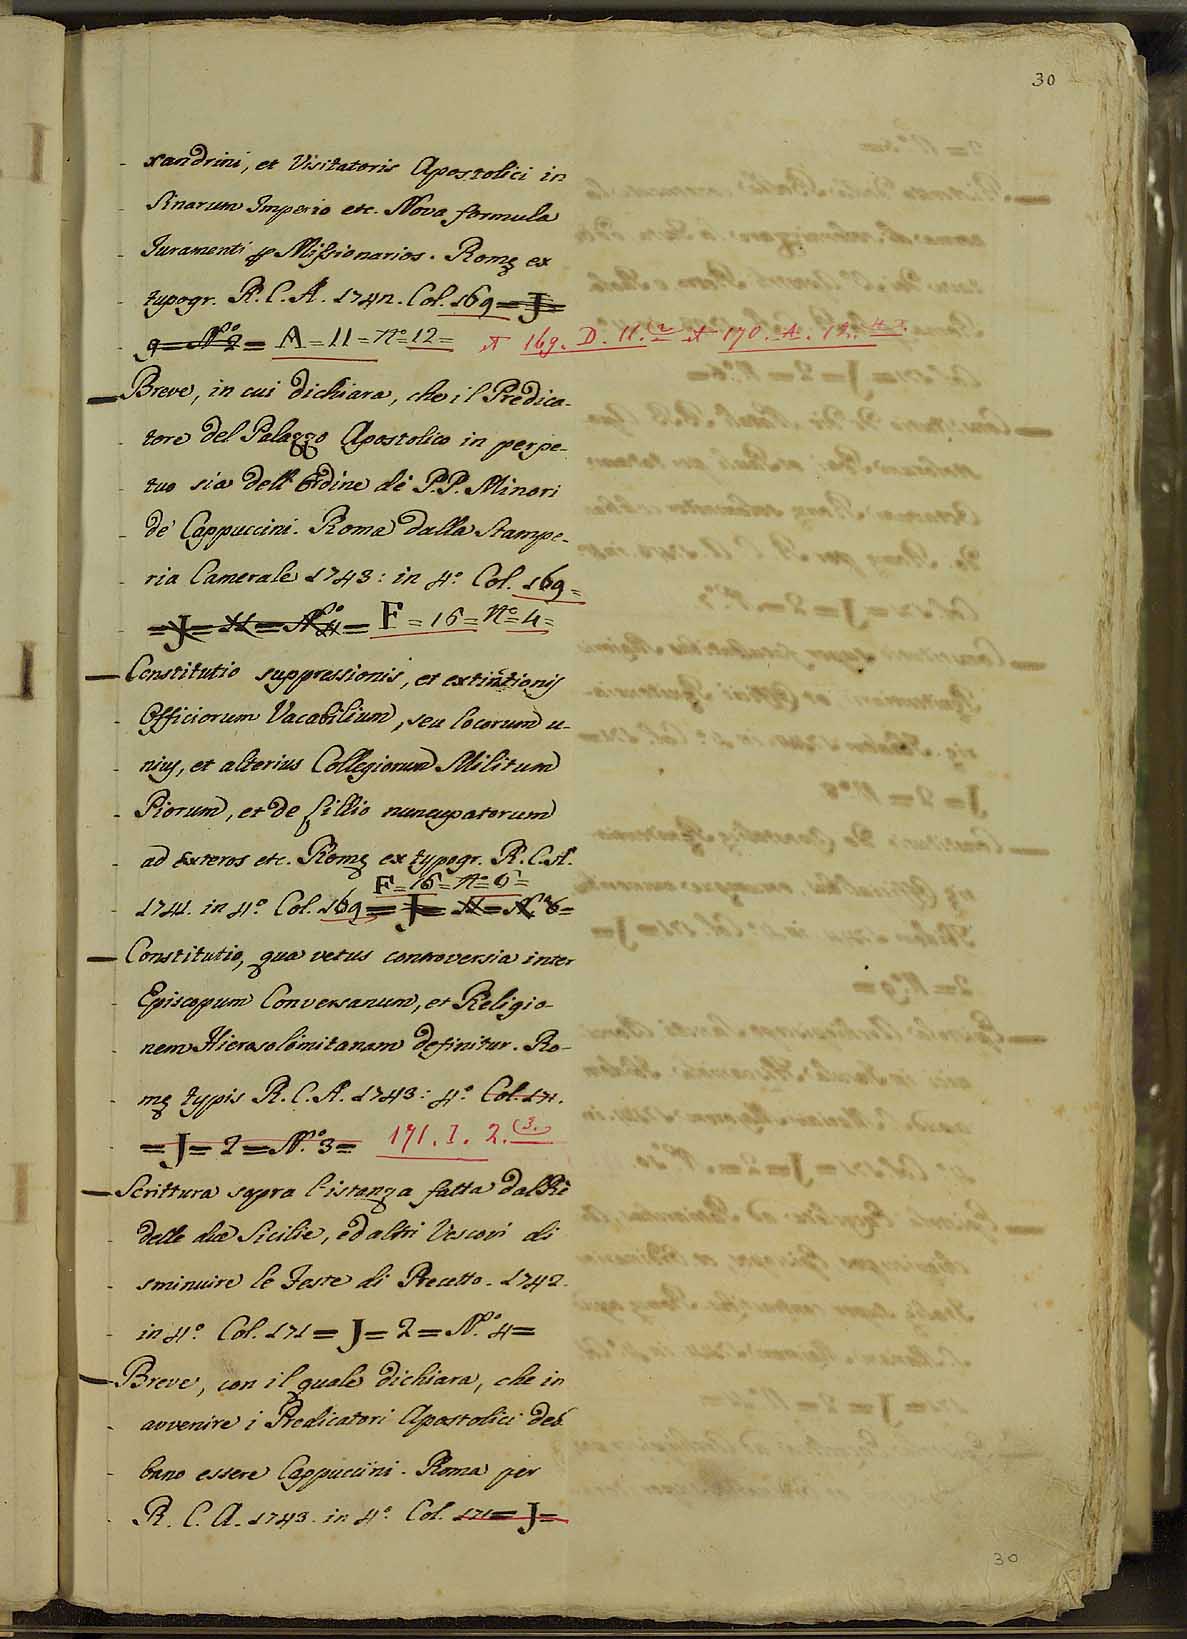 30
xandrini, et Visitatoris Apostolici in
Sinarum Imperio etc. Nova formula
Juramenti ꝓ Missionarios. Romę ex
typogr. R. C. A. 1742. Col. 169 = J =
9 = N.º 2 = A = 11 = Nº 12 = A 169. D. 11. (2 A 170. A. 12.
Breve, in cui dichiara, che il Predica-
tore del Palazzo Apostolico in perpe-
tuo sia dell' Ordine de' P.P. Minori
de' Cappuccini. Roma dalla Stampe-
ria Camerale 1743: in 4º. Col. 169 =
= J = 11 = N.º 4 = F = 16 = Nº 4 =
Constitutio suppressionis, et extinctionis
Officiorum Vacabilium, seu locorum u-
nius, et alterius Collegiorum Militum
Piorum, et de Lilio nuncupatorum
ad exteros etc. Romę ex typogr. R. C. A.
F = 16 = Nº 6 =
1741. in 4º. Col. 169 = J = 11 = N.º 6 =
Constitutio, qua vetus controversia inter
Episcopum Conversanum, et Religio-
nem Hierosolimitanam definitur. Ro-
mę typis R. C. A. 1743: 4º. Col. 171.
= J = 2 = N.º 3 = 171. I. 2. (3.
Scrittura sopra l'istanza fatta dal Rè
delle due Sicilie, ed altri Vescovi di
sminuire le Feste di Precetto. 1742.
in 4º. Col. 171 = J = 2 = N.º 4 =
Breve, con il quale dichiara, che in
avvenire i Predicatori Apostolici deb
bano essere Cappuccini. Roma per
R. C. A. 1743. in 4º. Col. 171 = J =
30